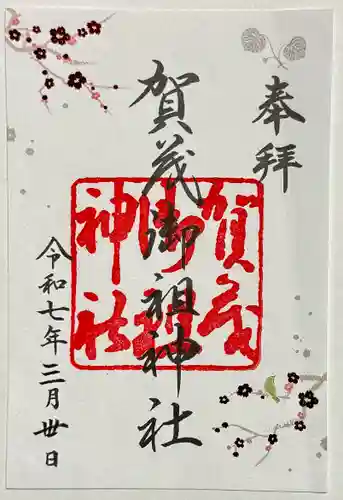 奉拝
賀茂御祖神社
賀茂
御祖
神社
令和七年三月丗日